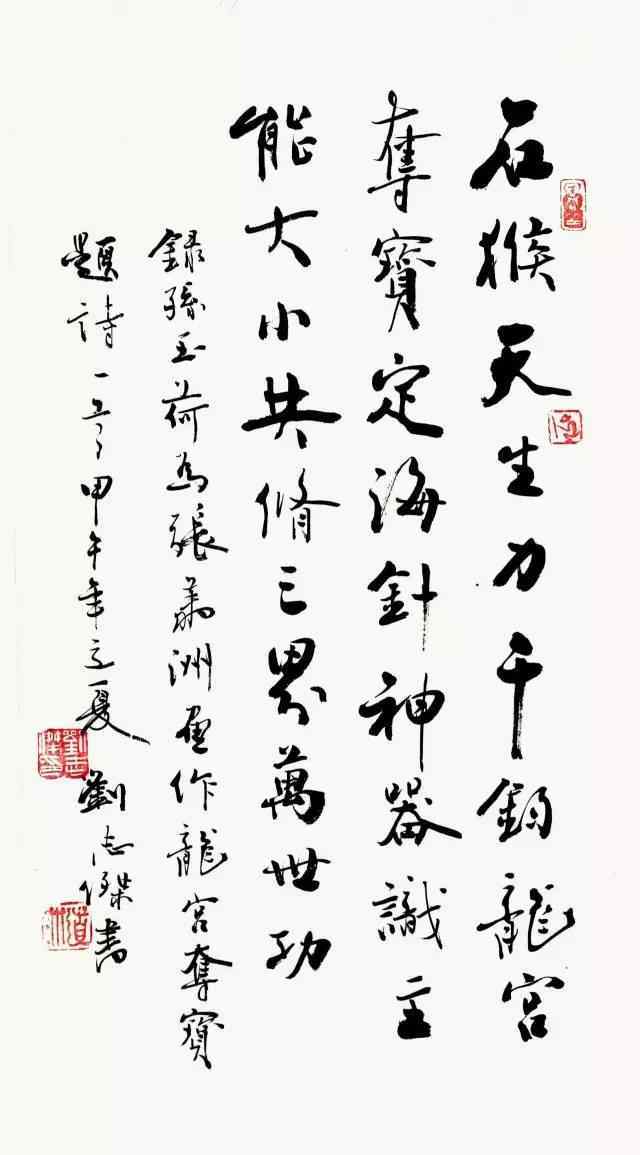 石猴天生力千鈞龍宮
奪寶定海針神器識主
能大小共脩三界萬世功
錄孫玉荷為張萬洲畫作龍宮奪寶
題詩一首甲午年立夏 劉志傑書
劉志傑印